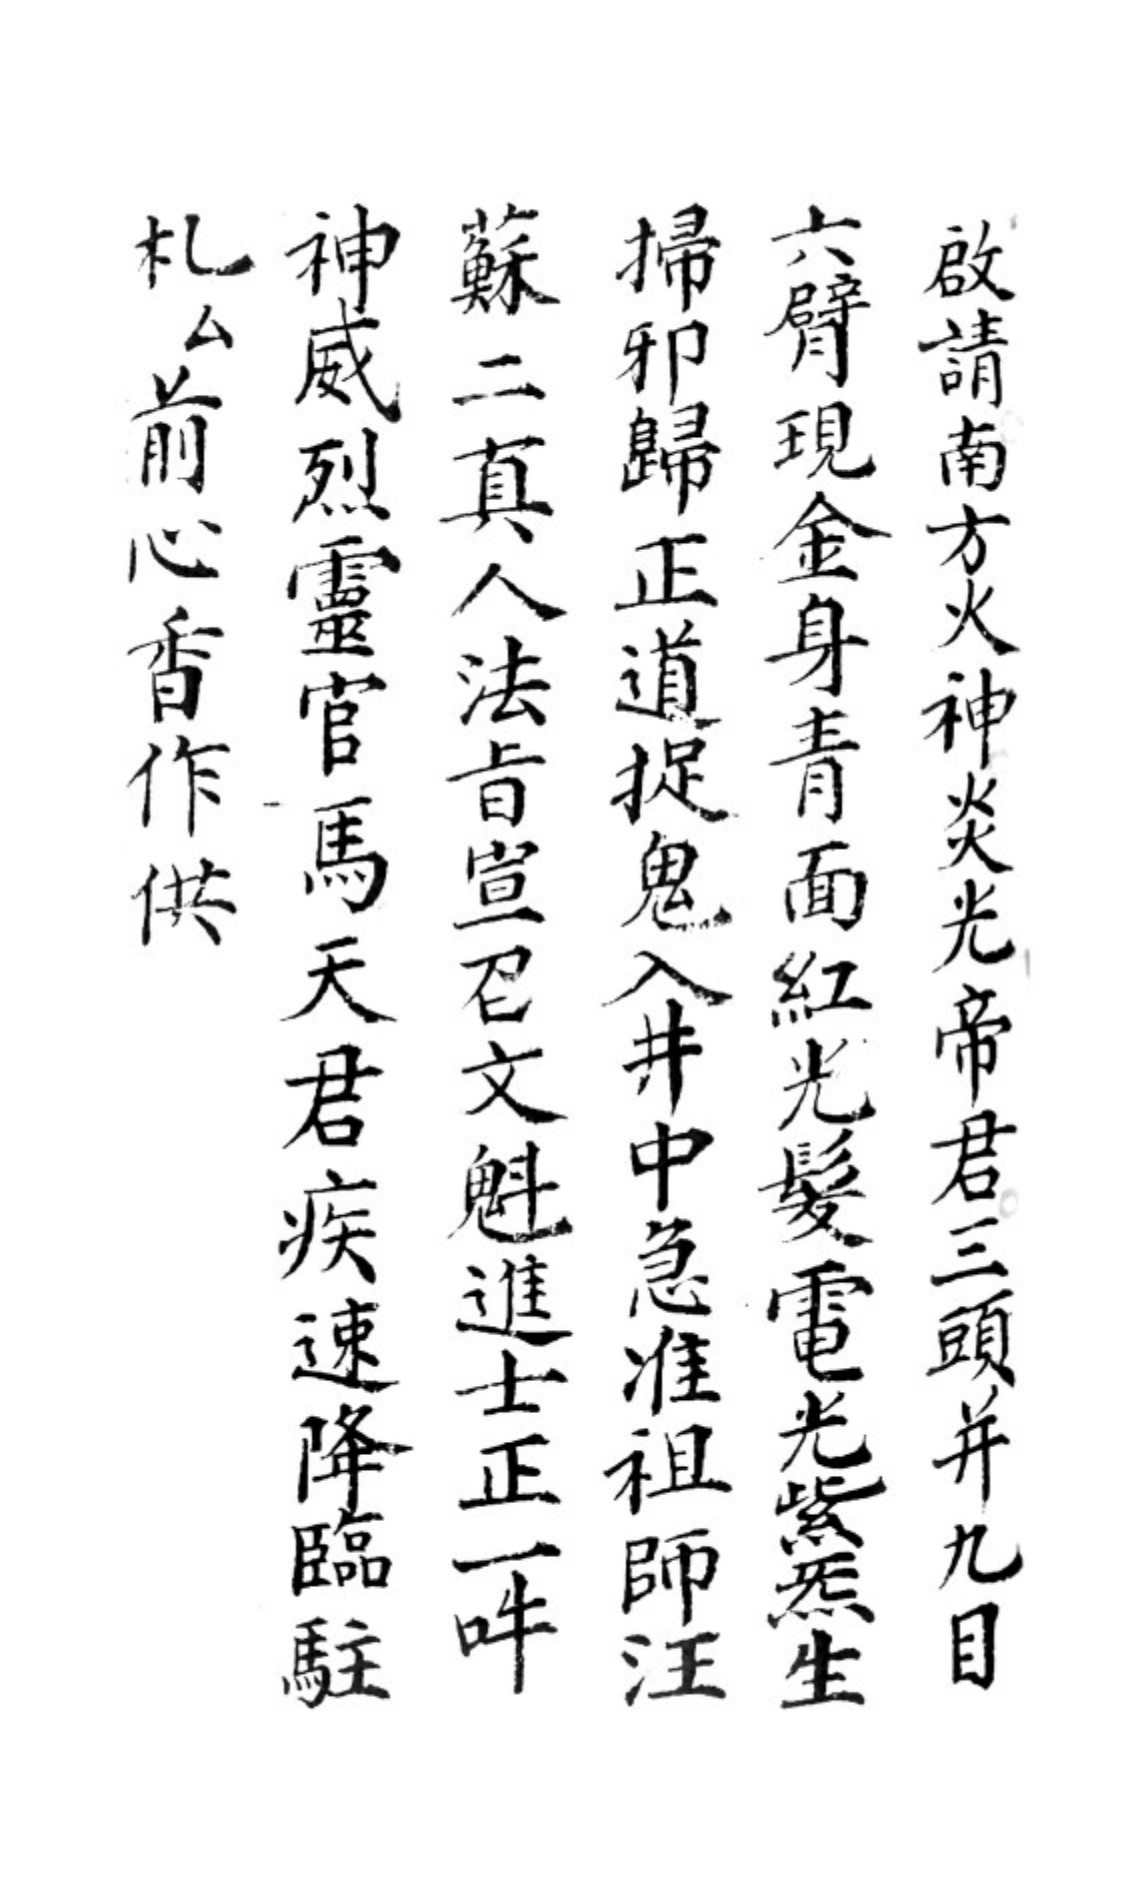 啟請南方火神炎光帝君三頭并九目
六臂現金身青面紅光髮電光紫炁生
掃邪歸正道捉鬼入井中急准祖師汪
蘇二真人法旨宣召文魁進士正一吽
神威烈靈官馬天君疾速降臨駐
札厶前心香作供